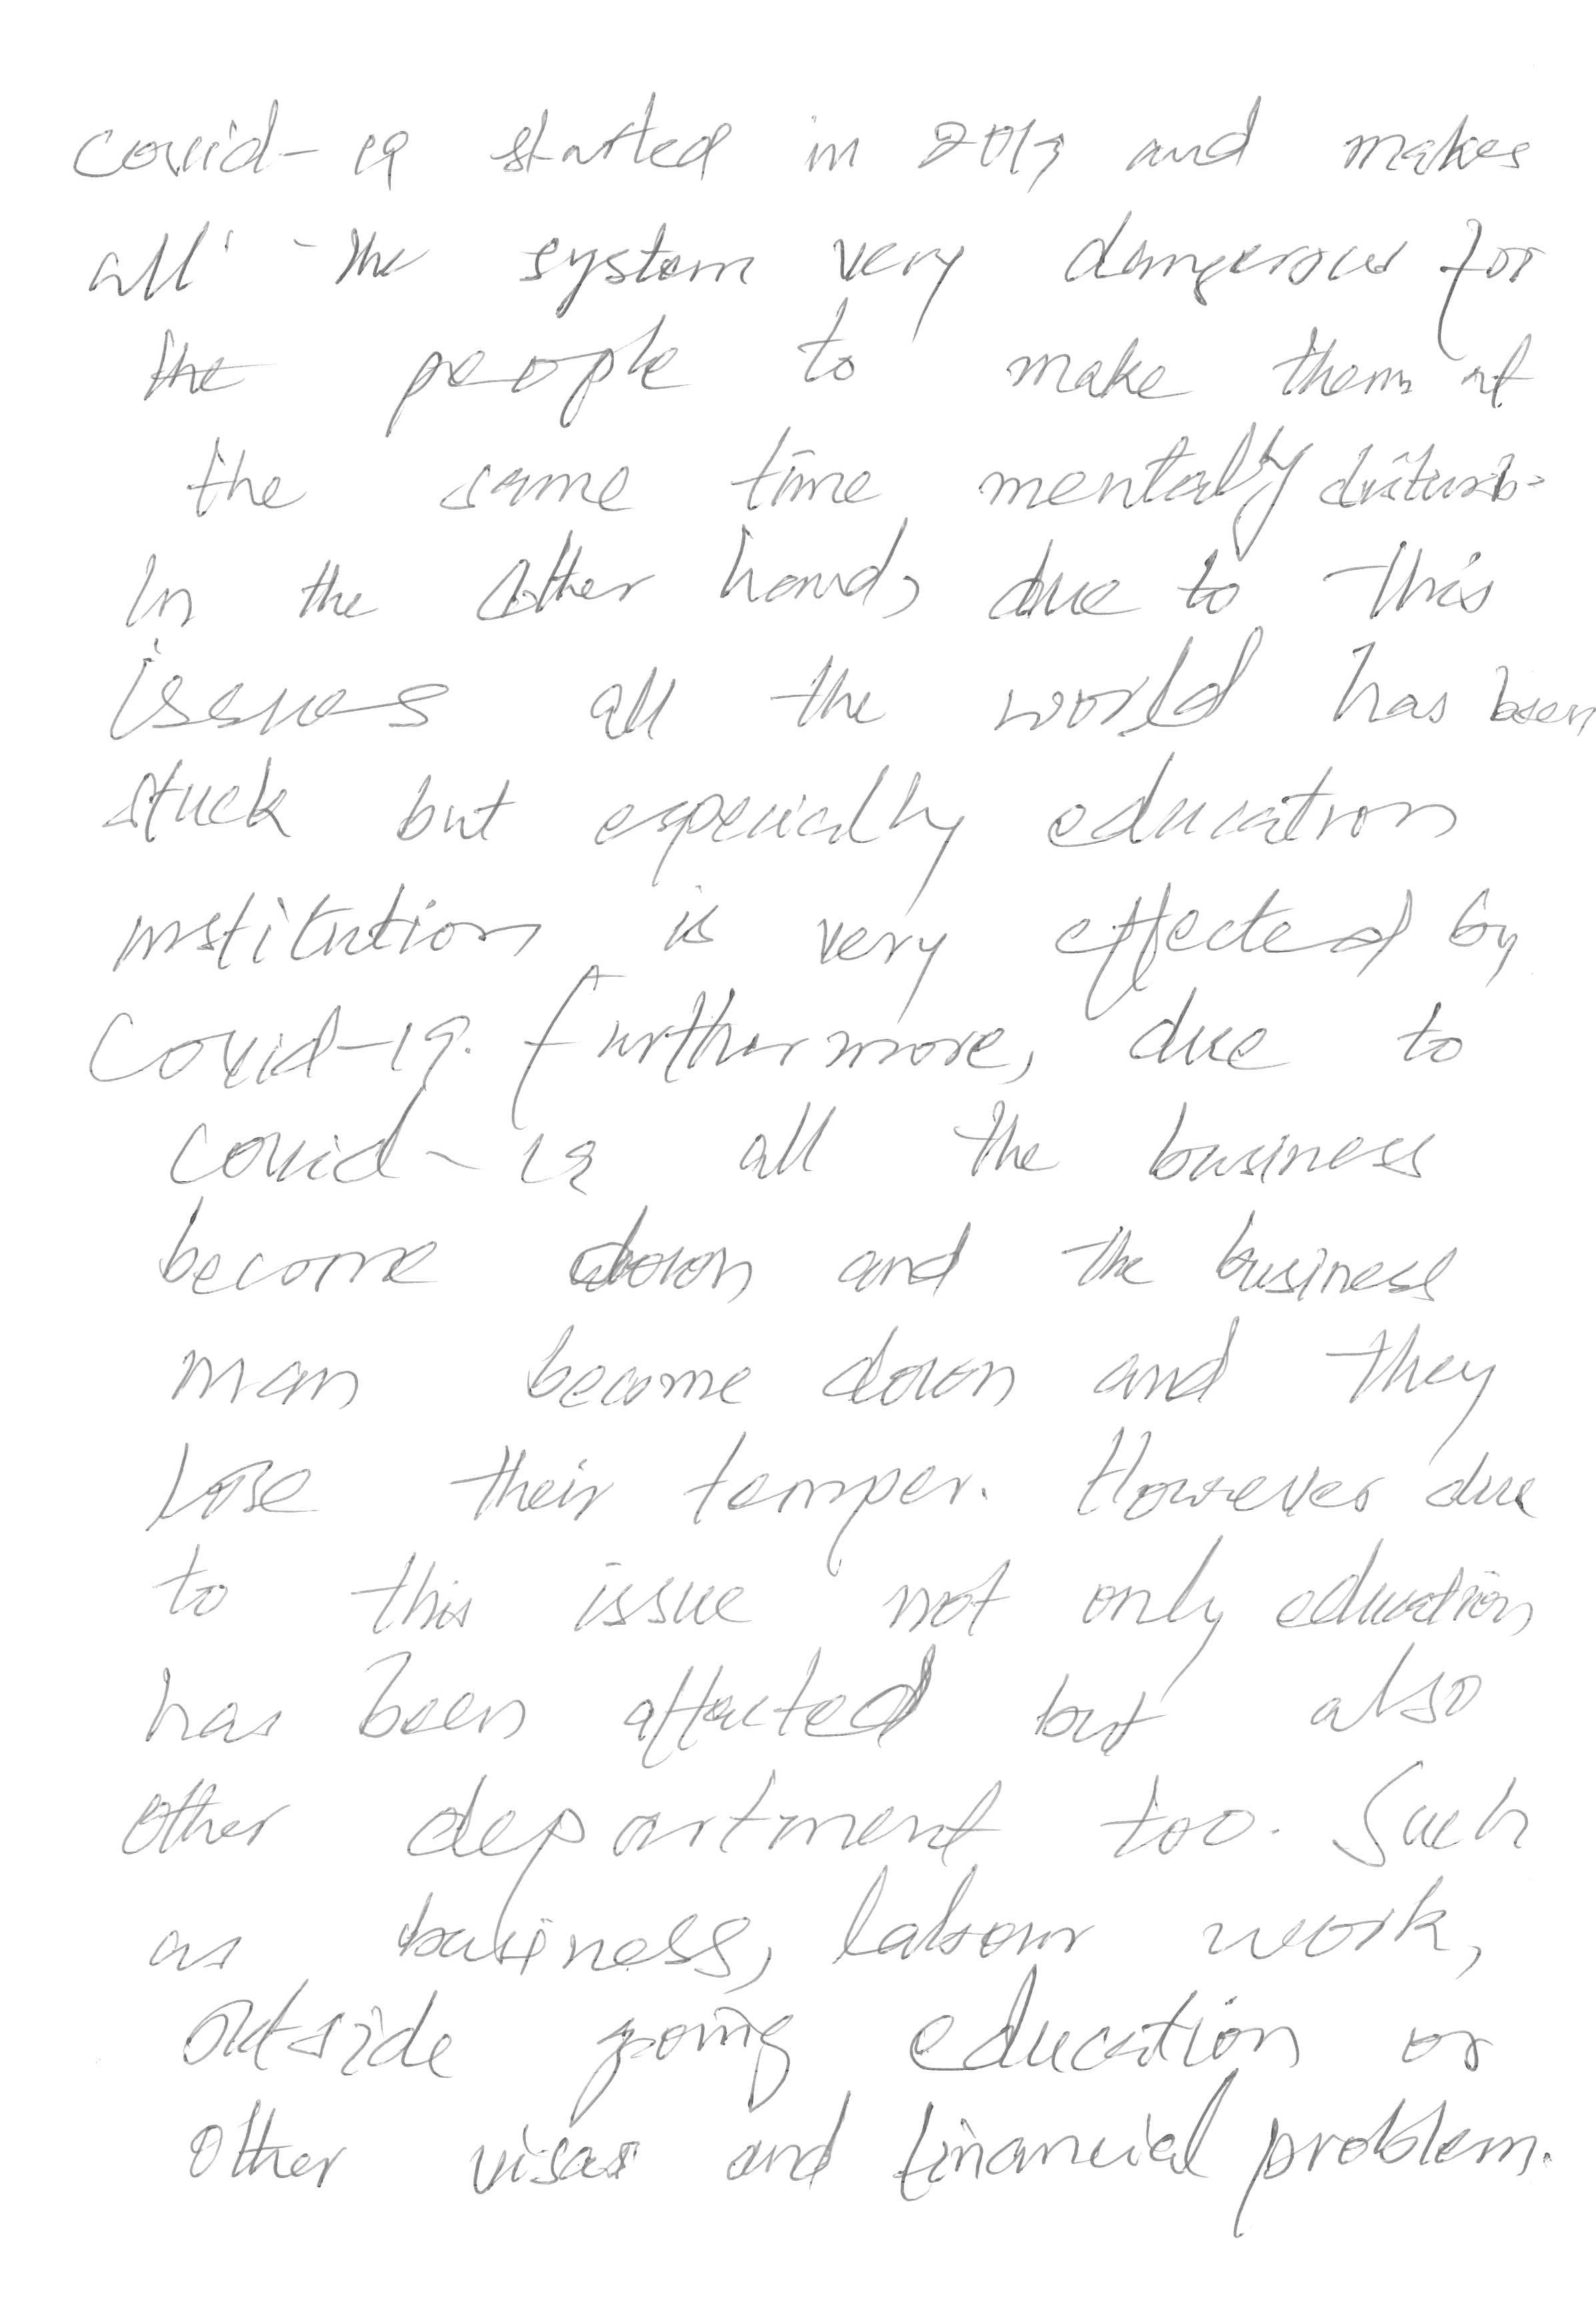 covid-19 started in 2019 and makes
all the system very dangerous for
the people to make them at
the same time mentally disturb.
In the other hand, due to this
issues all the world has been
stuck but especially education
institution is very effected by
Covid-19. Furthermore, due to
covid-19 all the business
become down and the business
man become down and they
lose their temper. However due
to this issue not only education
has been affacted but also
other department too. Such
as business, labour work,
outside going education or
other visas and financial problem.